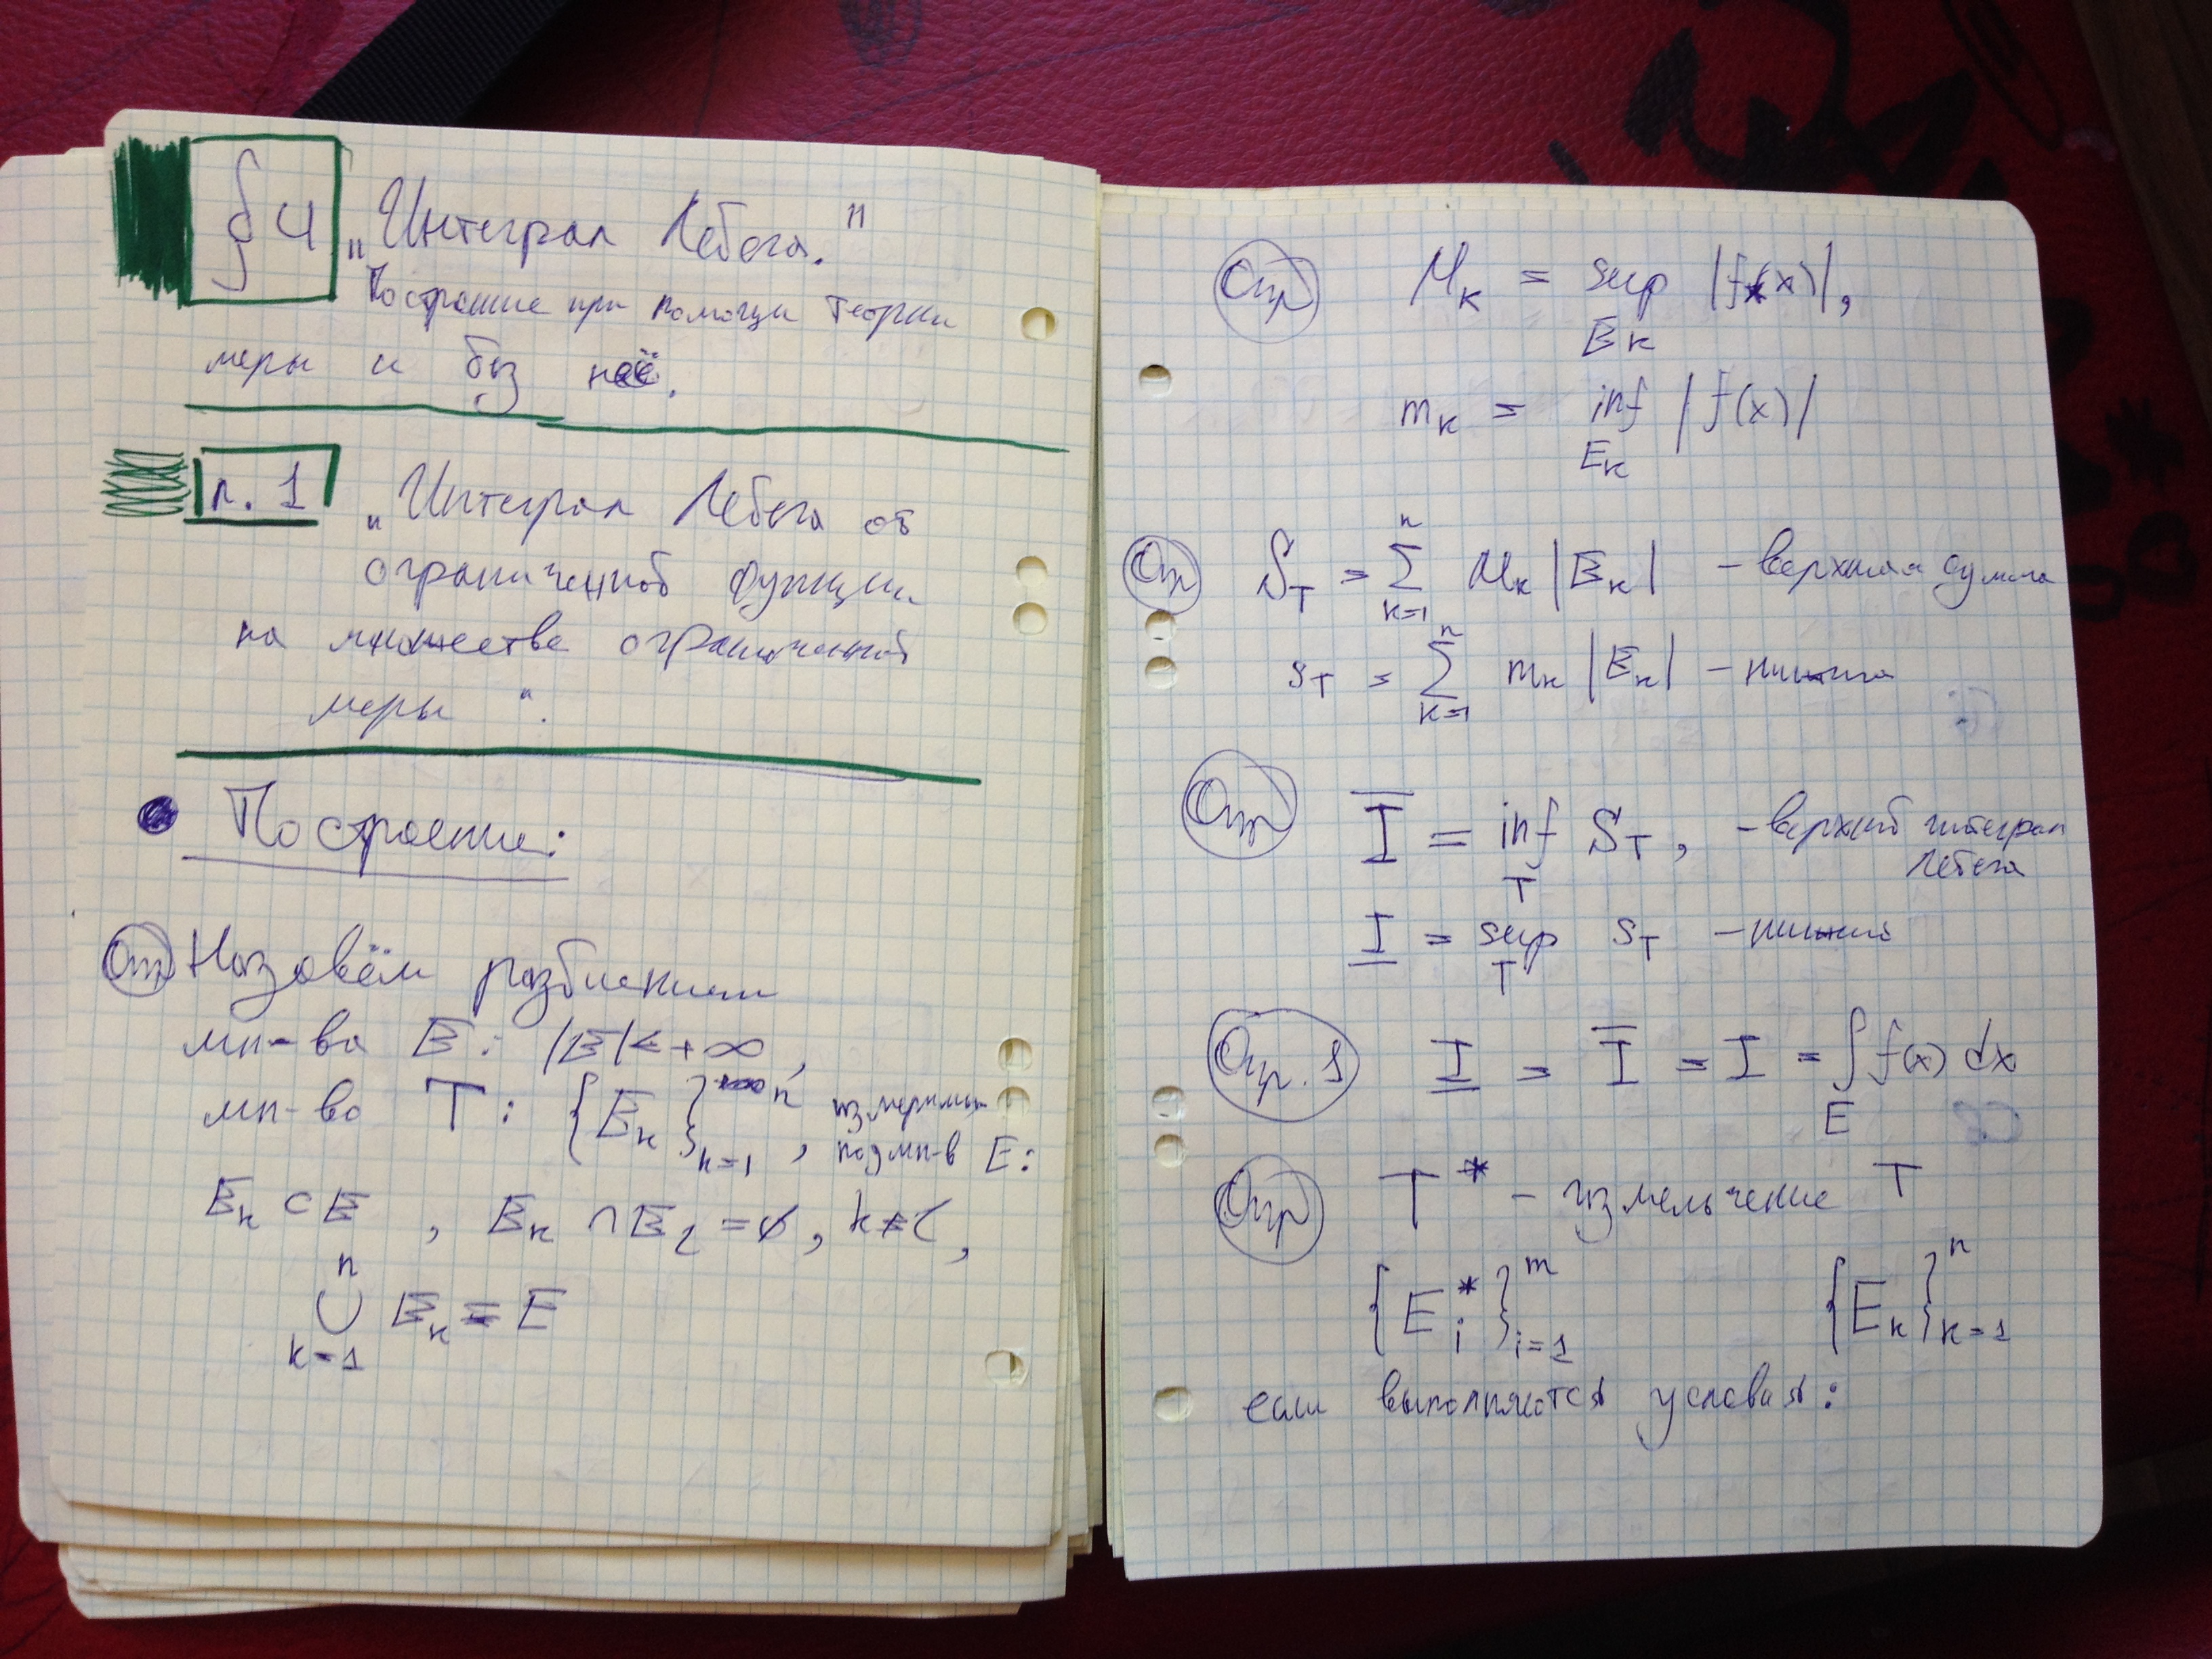 §4 „Интеграл Лебега."
Построение при помощи теории
меры и без неё.
п. 1 „Интеграл Лебега от
ограниченной функции
на множестве ограниченной
меры".
Построение:
Опр Назовём разбиением
мн-ва E: |E|<+∞,
мн-во T: {E_k}_{k=1}^n, измеримых
подмн-в E:
E_k ⊂ E, E_k ∩ E_l = ∅, k≠l,
⋃_{k=1}^n E_k = E
Опр M_k = sup_{E_k} |f(x)|,
m_k = inf_{E_k} |f(x)|
Оп S_T = ∑_{k=1}^n M_k |E_k| – верхняя сумма
s_T = ∑_{k=1}^n m_k |E_k| – нижняя
Опр Ī = inf_T S_T, – верхний интеграл
Лебега
I̲ = sup_T s_T – нижний
Опр. 1 I̲ = Ī = I = ∫_E f(x) dx
Опр T* – измельчение T
{E_i*}_{i=1}^m {E_k}_{k=1}^n
если выполняются условия: